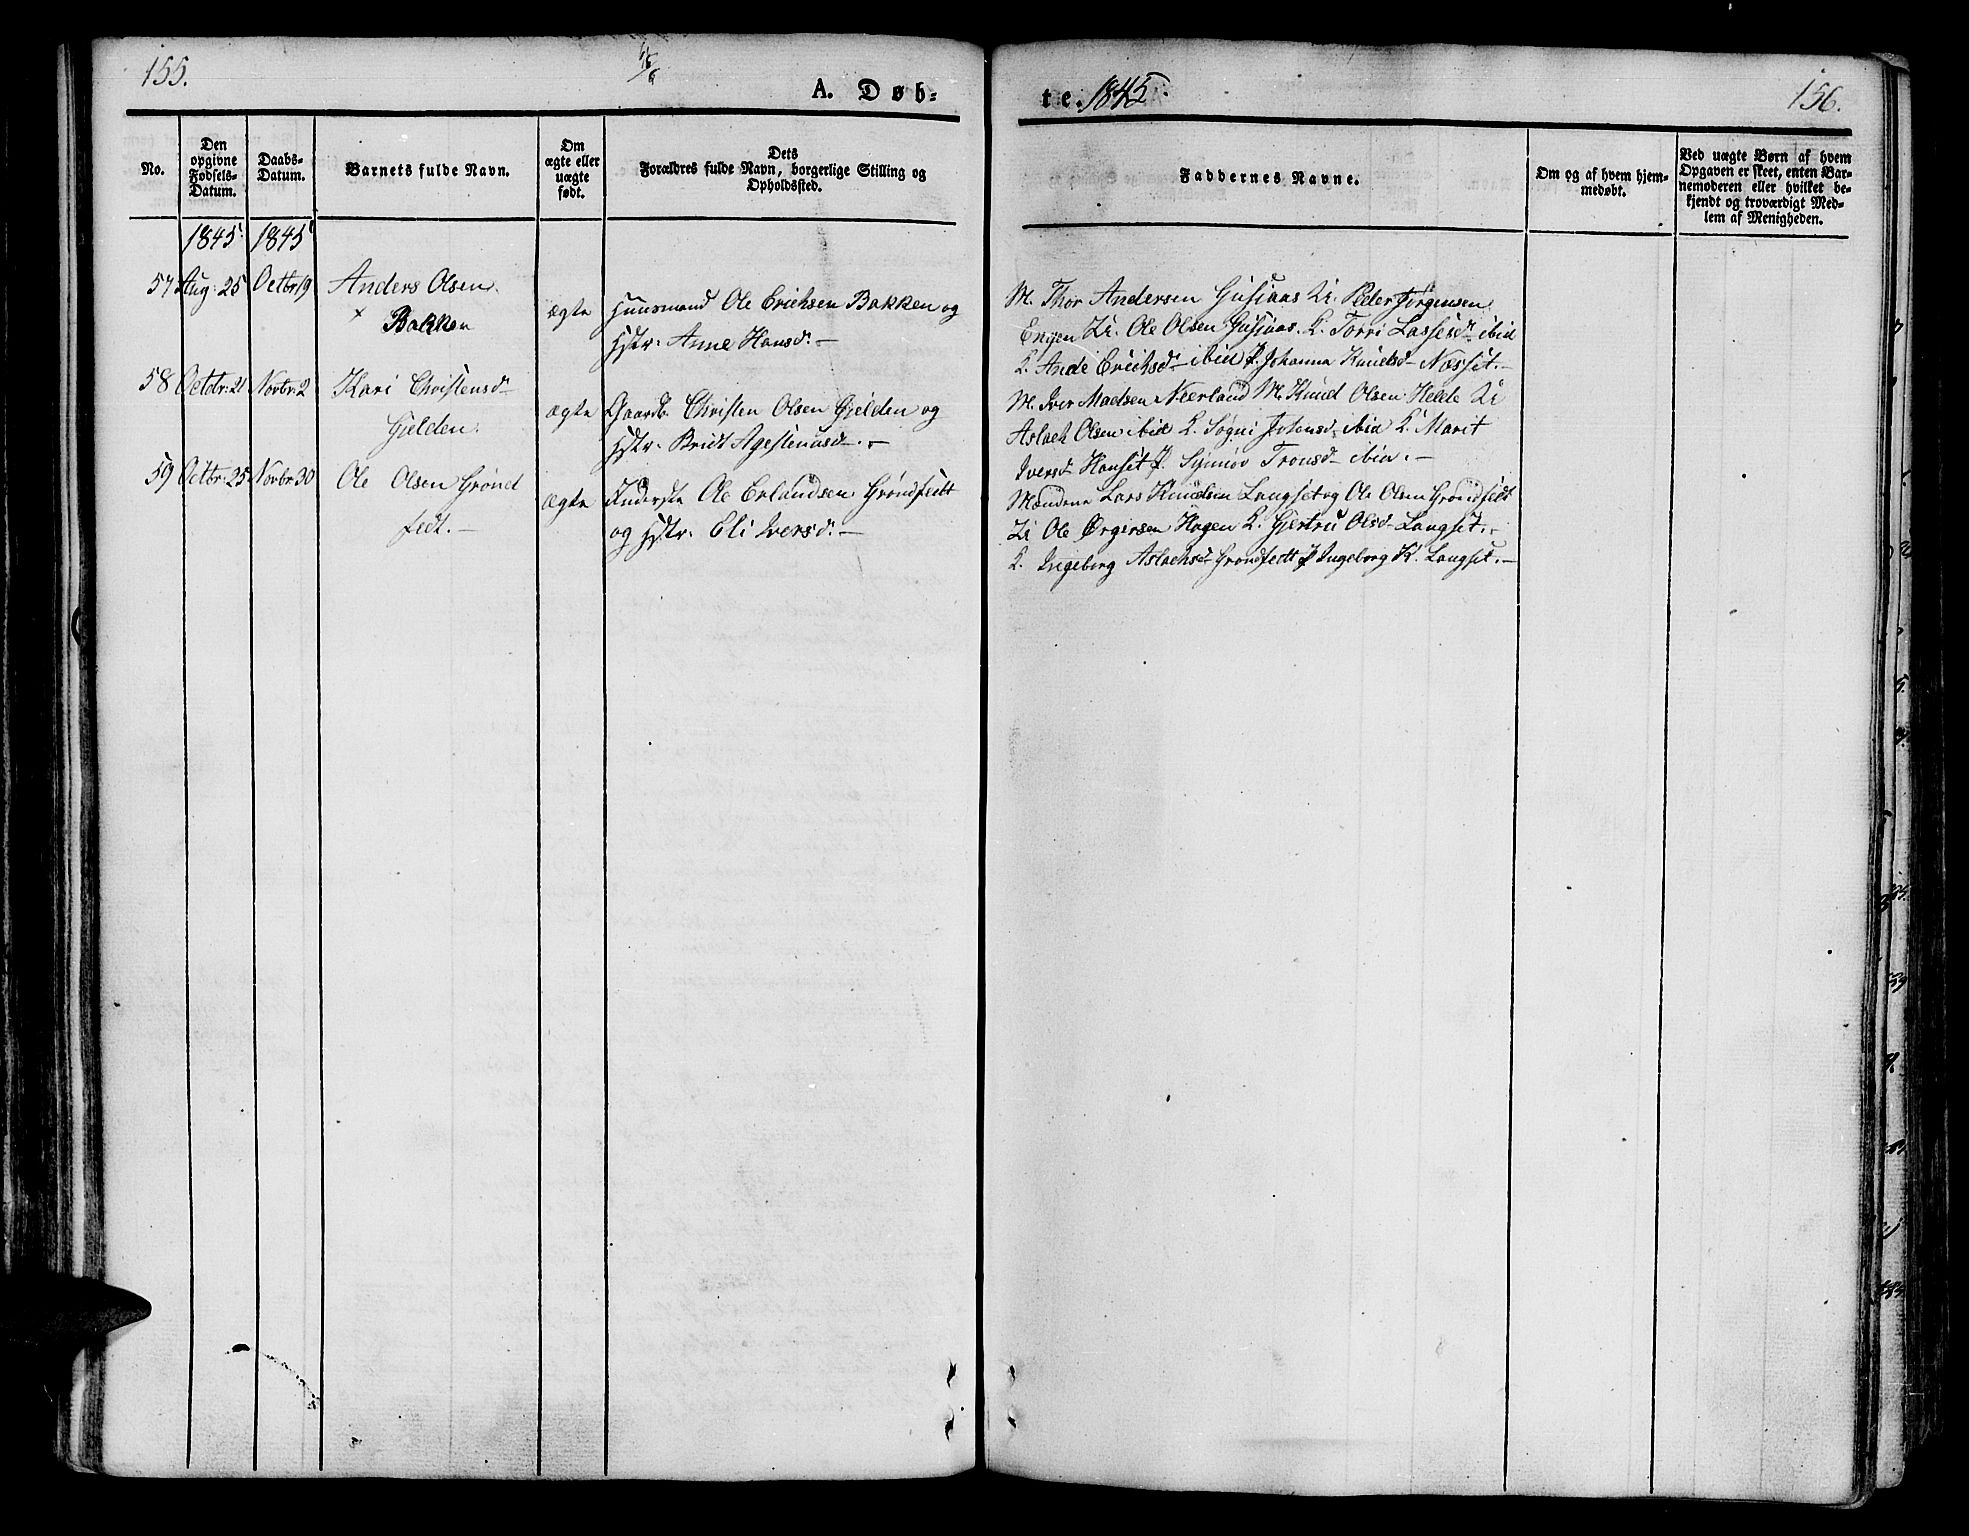 155.
A. Døb-
te. 1845.
156.
No.
Den
opgivne
Fødsels-
Datum.
Daabs-
Datum.
Barnets fulde Navn.
Om
ægte eller
uægte
født.
Dets
Forældres fulde Navn, borgerlige Stilling og
Opholdssted.
Faddernes Navne.
Om og af hvem hjem-
medøbt.
Ved uægte Børn af hvem
Opgaven er skeet, enten Bar-
nemoderen eller hvilket be-
kjendt og troværdigt Med-
lem af Menigheden.
1845. 1845
57 Aug: 25 Octbr 19 Anders Olsen
× Bakken
ægte
Huusmand Ole Erichsen Bakken og
Hstr. Anne Hansd. —
M. Thor Andersen Gusjaas U. Peder Jörgensen
Engen U. Ole Olsen Gusjaas. K. Torri Lassesd ibid
K. Ande Erichsd ibid P. Johanna Knudsd Næsset. —
58 Octbr: 21 Novbr: 2 Kari Christensd
Gjelden.
ægte
Gaardb. Christen Olsen Gjelden og
Hstr. Bridt Agestensd. —
M. Iver Madsen Nerland M. Knud Olsen Helde U
Aslach Olsen ibid K. Sögni Johnsd. ibid K. Marit
Iversd Hanset P. Synnöv Tronsd ibid. —
59 Octbr: 25 Novbr 30 Ole Olsen Grönd
fedt. —
ægte
Inderste Ole Erlandsen Gröndfedt
og Hstr. Eli Iversd. —
Mændene Lars Knudsen Langset og Ole Olsen Gröndfedt
U Ole Örgersen Hagen K. Gjertru Olsd Langset. —
K. Ingeborg Aslachsd Gröndfedt P Ingeborg K. Langset. —